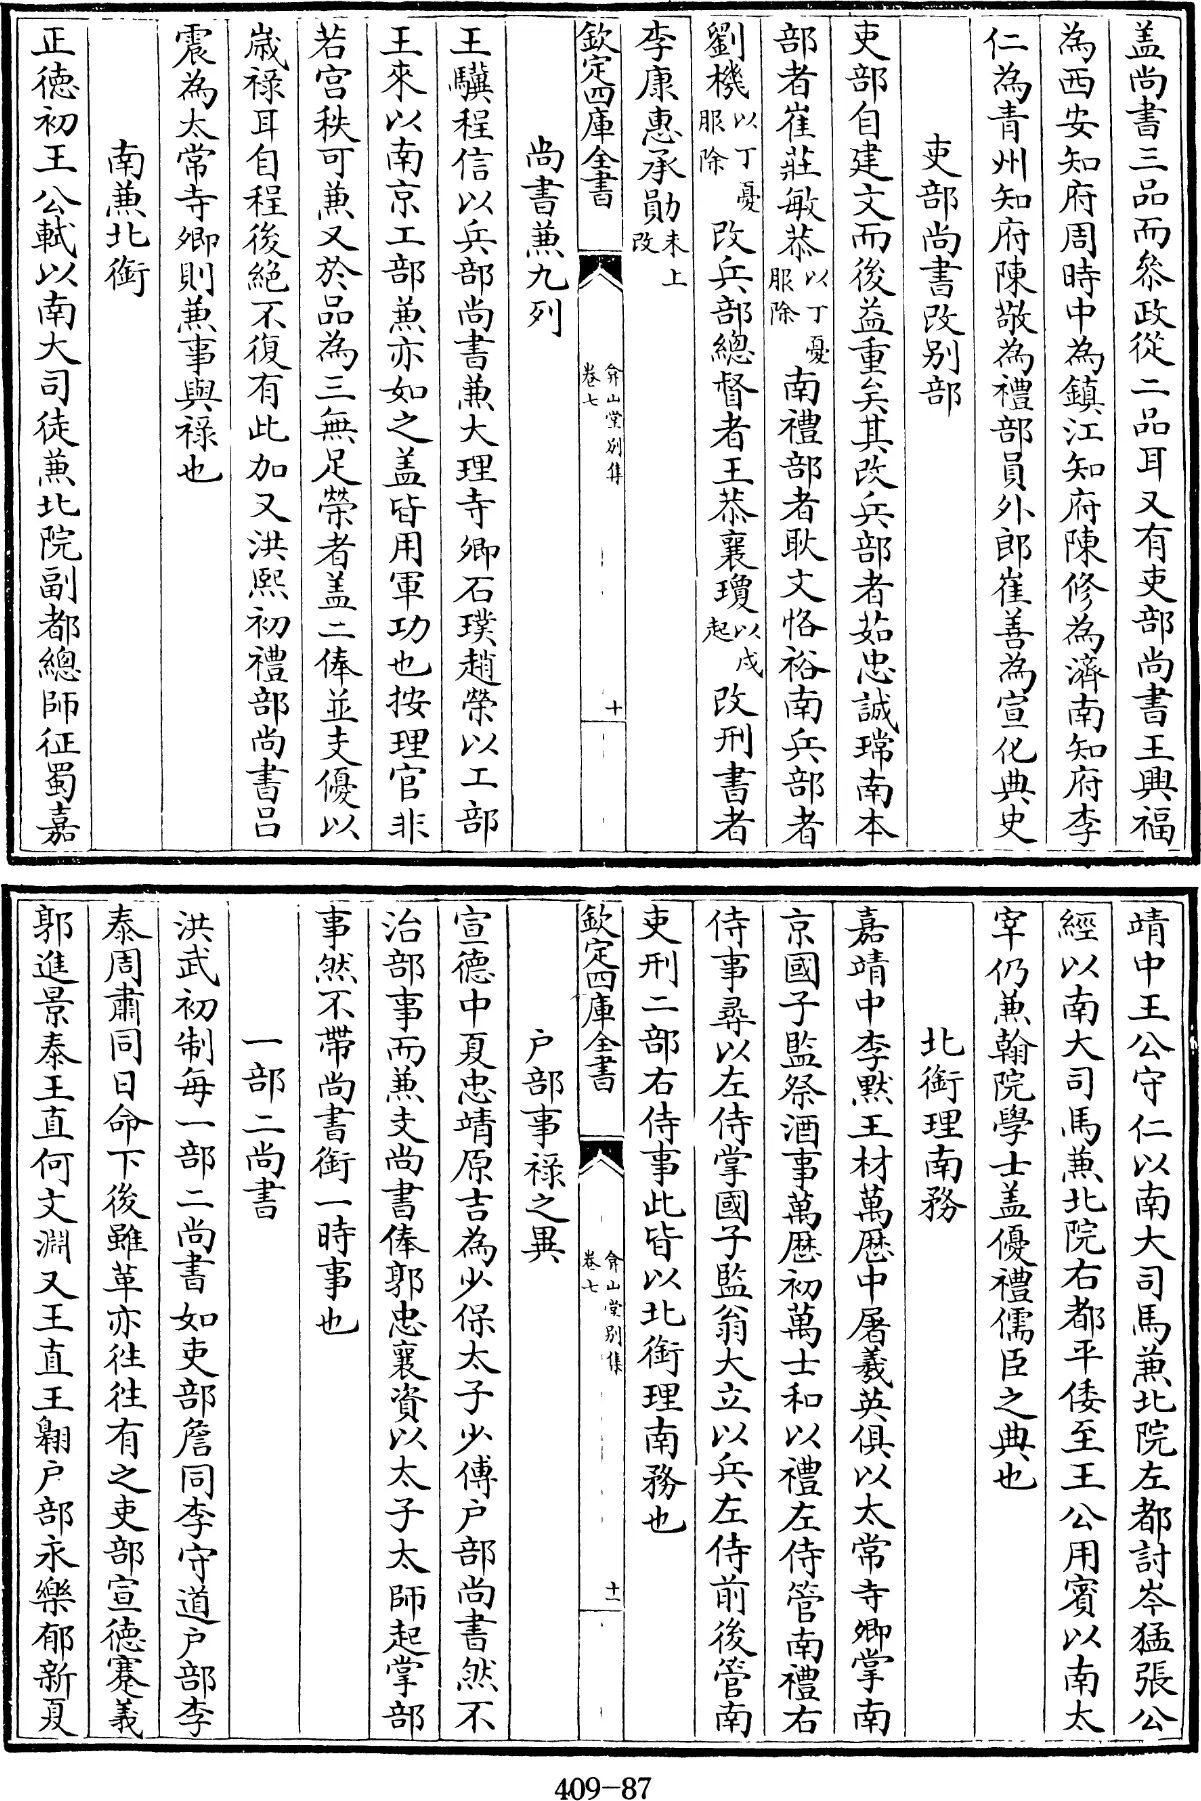 盖尚書三品而叅政從二品耳又有吏部尚書王興福
為西安知府周時中為鎮江知府陳修為濟南知府李
仁為青州知府陳敬為禮部員外郎崔善為宣化典史
吏部尚書改别部
吏部自建文而後益重矣其改兵部者茹忠誠瑺南本
部者崔莊敏恭以丁憂服除南禮部者耿文恪裕南兵部者
劉機以丁憂服除改兵部總督者王恭襄瓊以戍起改刑書者
李康惠承勛未上改
欽定四庫全書
弇山堂别集
卷七
十
尚書兼九列
王驥程信以兵部尚書兼大理寺卿石璞趙榮以工部
王來以南京工部兼亦如之盖皆用軍功也按理官非
若宫秩可兼又於品為三無足榮者盖二俸並支優以
歲祿耳自程後絕不復有此加又洪熙初禮部尚書吕
震為太常寺卿則兼事與祿也
南兼北銜
正德初王公軾以南大司徒兼北院副都總師征蜀嘉
靖中王公守仁以南大司馬兼北院左都討岑猛張公
經以南大司馬兼北院右都平倭至王公用賓以南太
宰仍兼翰院學士盖優禮儒臣之典也
北銜理南務
嘉靖中李黙王材萬厯中屠羲英俱以太常寺卿掌南
京國子監祭酒事萬厯初萬士和以禮左侍管南禮右
侍事尋以左侍掌國子監翁大立以兵左侍前後管南
吏刑二部右侍事此皆以北銜理南務也
欽定四庫全書
弇山堂别集
卷七
十一
户部事祿之異
宣德中夏忠靖原吉為少保太子少傅户部尚書然不
治部事而兼支尚書俸郭忠襄資以太子太師起掌部
事然不帶尚書銜一時事也
一部二尚書
洪武初制每一部二尚書如吏部詹同李守道户部李
泰周肅同日命下後雖革亦徃徃有之吏部宣德蹇義
郭進景泰王直何文淵又王直王翺户部永樂郁新夏
409-87